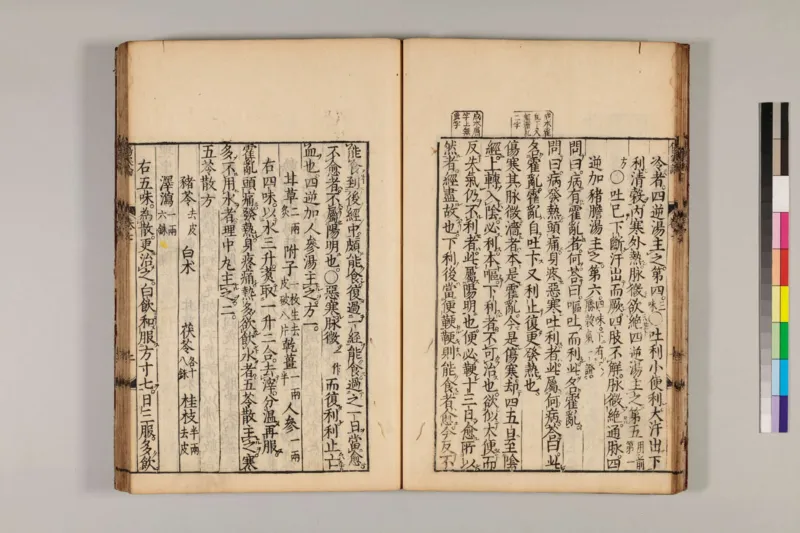 冷者四逆湯主之第四三味　吐利小便利大汗出下
利清穀內寒外熱脉微欲絕四逆湯主之第五用前第一
方○吐已下斷汗出而厥四肢不解脉微絕通脉四
逆加猪膽湯主之第六四味
問曰病有霍亂者何荅曰嘔吐而利此名霍亂
問曰病發熱頭痛身疼惡寒吐利者此屬何病荅曰此
名霍亂霍亂自吐下又利止復更發熱也
傷寒其脉微濇者本是霍亂今是傷寒却四五日至陰
經上轉入陰必利本嘔下利者不可治也欲似大便而
反失氣仍不利者此屬陽明也便必鞕十三日愈所以
然者經盡故也下利後當便鞕鞕則能食者愈今反不
能食到後經中頗能食復過一經能食過之一日當愈
不愈者不屬陽明也○惡寒脉微一作而復利利止亡
血也四逆加人參湯主之方一
甘草二兩炙　附子一枚生去皮破八片　乾薑一兩半　人參一兩
右四味以水三升煑取一升二合去滓分溫再服
霍亂頭痛發熱身疼痛熱多欲飲水者五苓散主之寒
多不用水者理中丸主之二
五苓散方
豬苓去皮　白朮　茯苓各十八銖　桂枝半兩去皮
澤瀉一兩六銖
右五味爲散更治之白飲和服方寸七日三服多飲